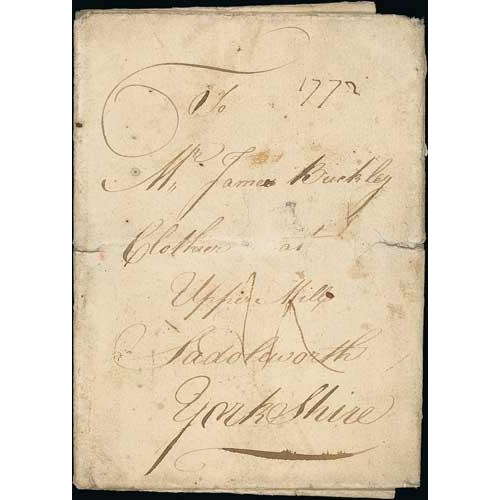 To 1772
Mr James Buckley
Clothier at
Upper Mill
Saddleworth
YorkShire